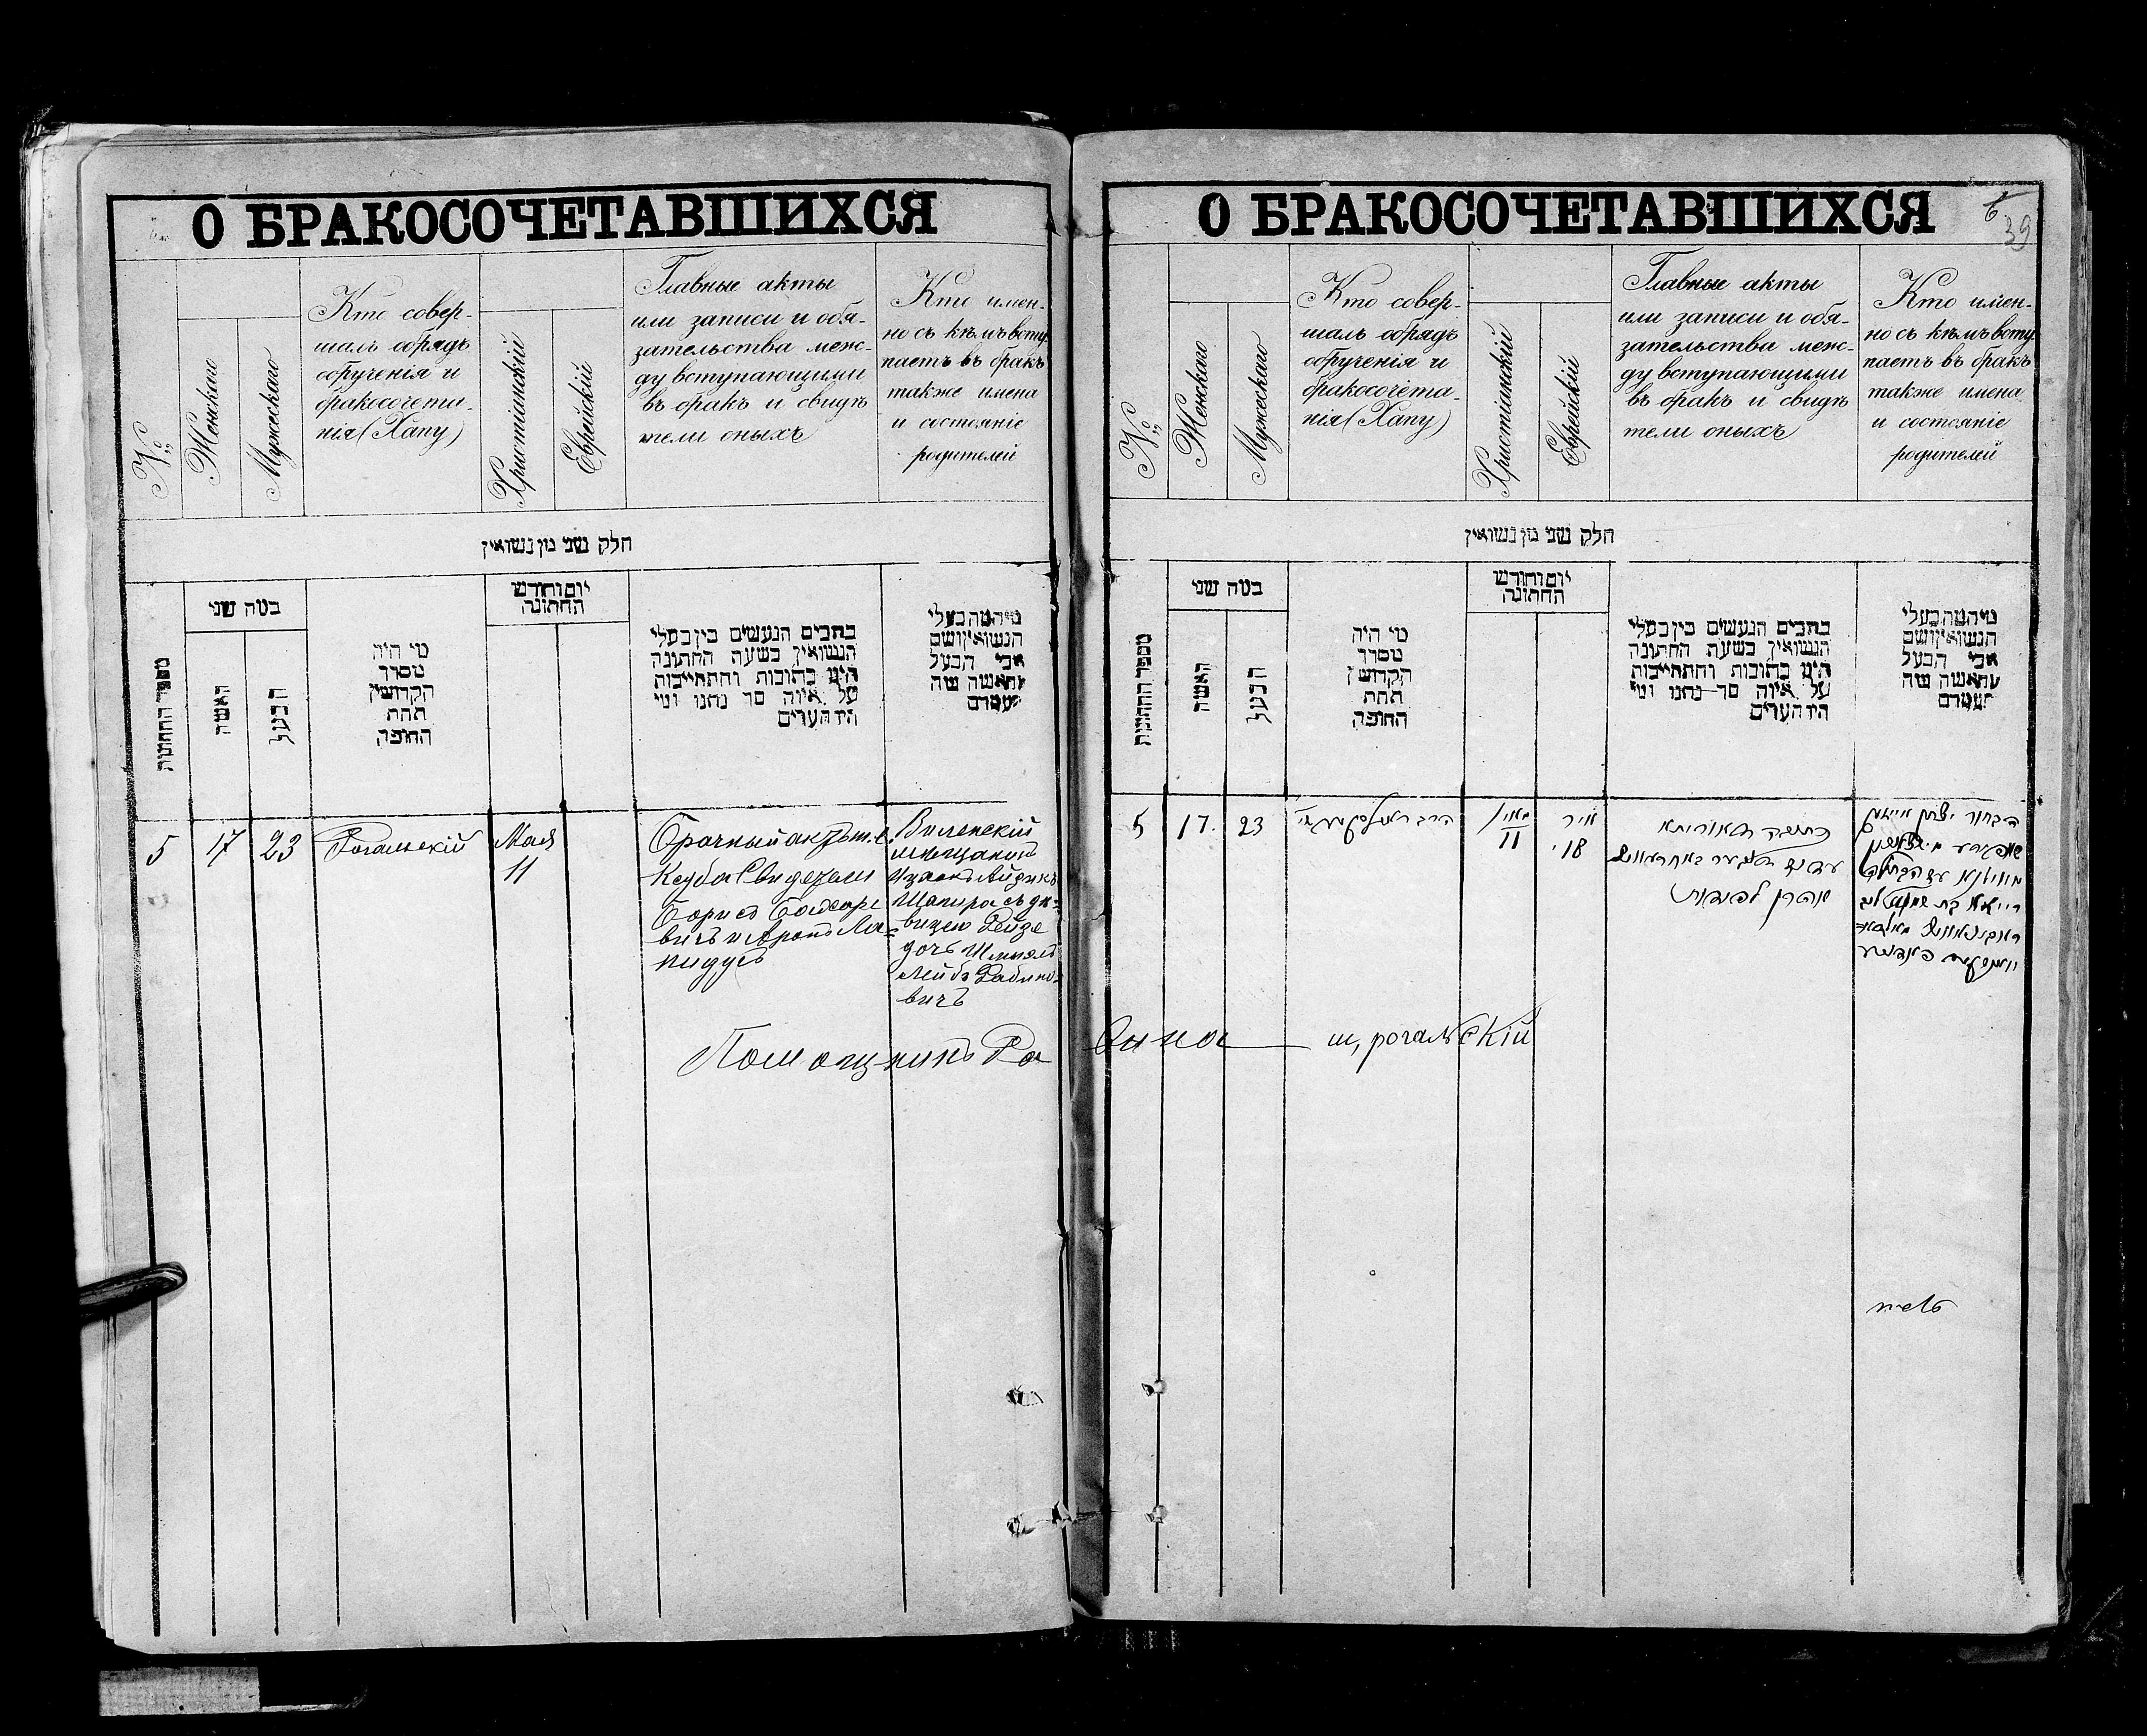 О БРАКОСОЧЕТАВШИХСЯ
№
Женскаго
Мужескаго
Кто совер-
шалъ обрядъ
обрученія и
бракосочета-
нія (Хапу)
Христіанскій
Еврейскій
Главные акты
или записи и обя-
зательства меж-
ду вступающими
въ бракъ и свидѣ
тели оныхъ
Кто имен-
но съ кѣмъ всту
паетъ въ бракъ
также имена
и состояніе
родителей
חלק שני מן נשואין
מספר החתונות
כמה שני
האשה
הבעל
מי היה
מסדר
הקדושין
תחת
החופה
יום וחודש
החתונה
כתבים הנעשים בין בעלי
הנשואין בשעת החתונה
היינו כתובות והתחייבות
על איזה סך נתנו ומי
היו העדים
מי המה בעלי
הנשואין ושם
אבי הבעל
והאשה ומה
מעמדם
5
17
23
Рогальскій
Мая
11
Брачный актъ т. е.
Кеуба Свидетели
Борисъ
вичъ и Аронъ Ла-
пидусъ
Виленскій
мещанинъ
Ицакъ Айзикъ
Шапира съ дѣ-
вицею Рейзе
дочь Шмуелъ
Лейба Рабино-
вичъ
Помощникъ Ра
О БРАКОСОЧЕТАВШИХСЯ
6
39
№
Женскаго
Мужескаго
Кто совер-
шалъ обрядъ
обрученія и
бракосочета-
нія (Хапу)
Христіанскій
Еврейскій
Главные акты
или записи и обя-
зательства меж-
ду вступающими
въ бракъ и свидѣ
тели оныхъ
Кто имен-
но съ кѣмъ всту
паетъ въ бракъ
также имена
и состояніе
родителей
חלק שני מן נשואין
מספר החתונות
כמה שני
האשה
הבעל
מי היה
מסדר
הקדושין
תחת
החופה
יום וחודש
החתונה
כתבים הנעשים בין בעלי
הנשואין בשעת החתונה
היינו כתובות והתחייבות
על איזה סך נתנו ומי
היו העדים
מי המה בעלי
הנשואין ושם
אבי הבעל
והאשה ומה
מעמדם
5
17.
23
הרב ראגאלסקי
מאי
11
אייר
18
כתובה דאורייתא
אהרן לפידות
הבחור יצחק אייזיק
שאפירא
מווילנא עם הבתולה
רייזא בת שמואל ליב
ראבינאוויץ
вина ш, рогальскій